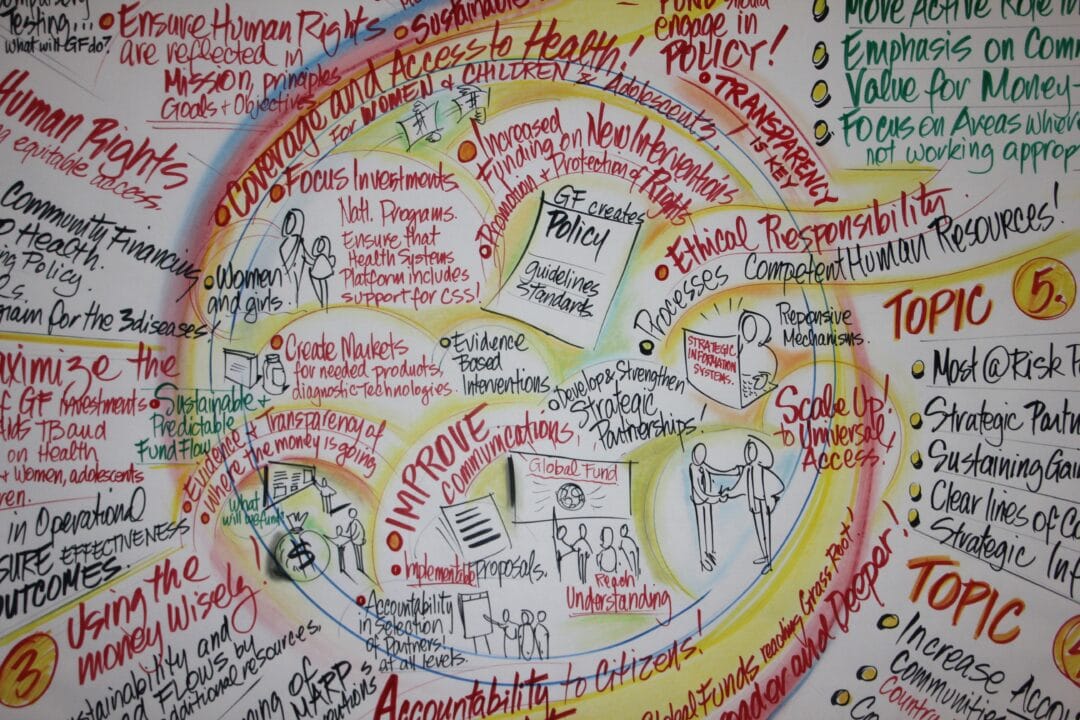 Testing...
what will GF do?
Ensure Human Rights
are reflected in
Mission, principles
Goals + Objectives
Sustainable
engage in
POLICY!
TRANSPARENCY
IS KEY
Move Active Role in
Emphasis on Com
Value for Money-
Focus on Areas wher
not working approp
Human Rights
equitable access.
Community Financing
Health.
Policy
gram for the 3 diseases!
Coverage and Access to Health!
For WOMEN & CHILDREN & Adolescents!
Focus Investments
Natl. Programs.
Ensure that
Health Systems
Platform includes
support for CSS!
Women
and girls.
Increased
Funding on New Interventions
Promotion + Protection of Rights
GF creates
Policy
guidelines
standards
Ethical Responsibility
Processes Competent Human Resources!
STRATEGIC
INFORMATION
SYSTEMS.
Reponsive
Mechanisms.
TOPIC 5.
Most @ Risk P
Strategic Partn
Sustaining Gain
Clear lines of Co
Strategic Inf
Create Markets
for needed products,
diagnostic Technologies
Evidence
Based
Interventions
Develop & Strengthen
Strategic
Partnerships!
Scale Up!
to Universal
Access!
aximize the
f GF investments
TB and
on Health
+ Women, adolescents
ren.
in Operational
SURE EFFECTIVENESS
OUTCOMES.
Sustainable +
Predictable
Fund Flow
Evidence + Transparency of
where the money is going
What
will be fund
$
IMPROVE
Communications,
Implementable Proposals.
Global Fund
Reach
Understanding
Accountability
in selection
of Partners!
at all levels.
3 Using the
money Wisely!
stainability and
Flows by
additional resources.
ning of
MARP'S
Accountability to Citizens!
Global Funds reaching Grass Root!
oader and Deeper!
TOPIC
Increase Acco
Communiti
Countr